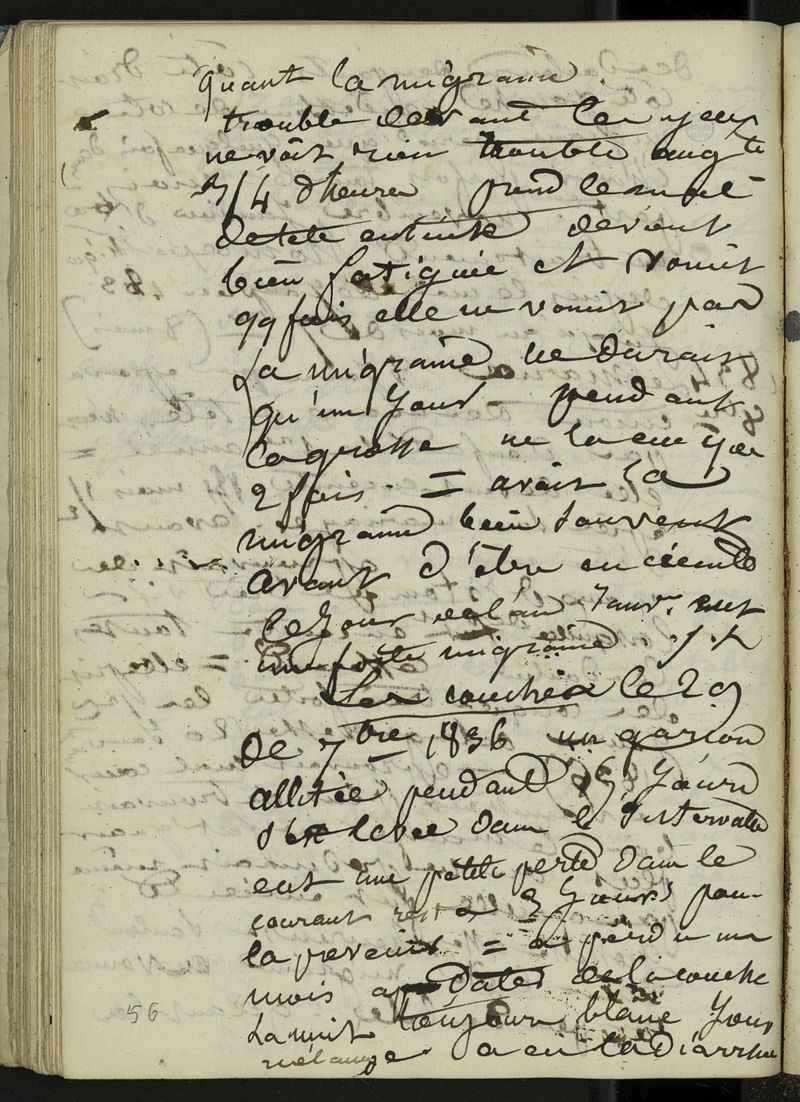 quant la migraine.
trouble devant les yeux
ne voit rien trouble augte
3/4 d'heure prend le mal
de tete ensuite devient
bien fatiguée et vomit
qq fois elle ne vomit pas
La migraine ne durait
qu'un jour pendant
la grosse ne la eue que
2 fois. = avait la
migraine bien souvent
avant d'être enceinte
le jour de l'an Janv. eut
une forte migraine
Ses couches le 29
de 7bre 1836 un garçon
allitée pendant 15 jours
s'est levée dans l'intervalle
eut une petite perte dans le
courant 3 jours
= a perdu un
mois de la couche
La nuit toujours blanc jour
mélange a eu la diarrhée
56